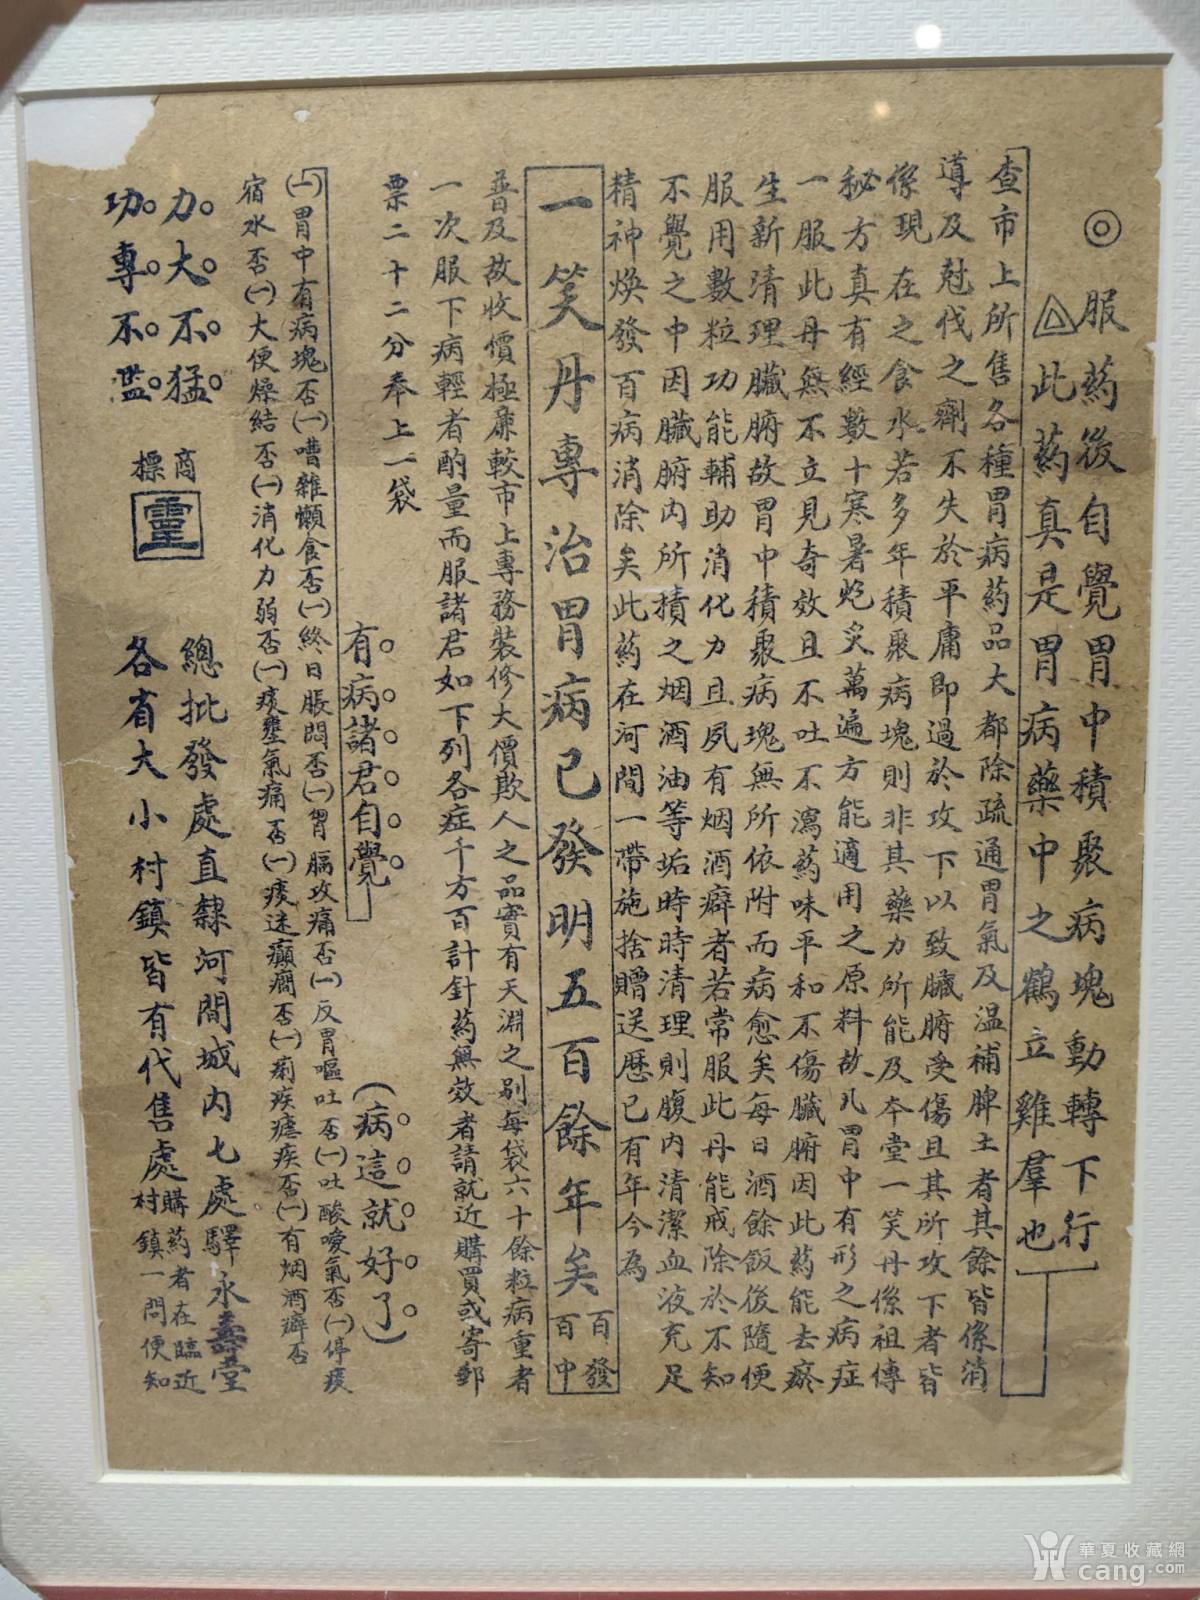 ◎服药後自覺胃中積聚病塊動轉下行
△此药真是胃病藥中之鶴立雞羣也
查市上所售各種胃病药品大都除疏通胃氣及温補脾土者其餘皆係消
導及尅伐之劑不失於平庸即過於攻下以致臟腑受傷且其所攻下者皆
係現在之食水若多年積聚病塊則非其藥力所能及本堂一笑丹係祖傳
秘方真有經數十寒暑炮炙萬遍方能適用之原料故凡胃中有形之病症
一服此丹無不立見奇效且不吐不瀉药味平和不傷臟腑因此药能去瘀
生新清理臟腑故胃中積聚病塊無所依附而病愈矣每日酒餘飯後隨便
服用數粒功能輔助消化力且夙有烟酒癖者若常服此丹能戒除於不知
不覺之中因臟腑内所積之烟酒油等垢時時清理則腹内清潔血液充足
精神煥發百病消除矣此药在河間一帶施捨贈送歷已有年今為
一笑丹專治胃病已發明五百餘年矣百發百中
普及故收價極廉較市上專務裝修大價欺人之品實有天淵之别每袋六十餘粒病重者
一次服下病輕者酌量而服諸君如下列各症千方百計針药無效者請就近購買或寄郵
票二十二分奉上一袋
有病諸君自覺
(病這就好了)
㈠胃中有病塊否㈠嘈雜懶食否㈠終日脹悶否㈠胃膈攻痛否㈠反胃嘔吐否㈠吐酸噯氣否㈠停痰
宿水否㈠大便燥結否㈠消化力弱否㈠痰壅氣痛否㈠痰迷癲癇否㈠痢疾瘧疾否㈠有烟酒癖否
力大不猛
功專不濫
商標
靈
總批發處直隸河間城内七處驛永壽堂
各省大小村鎮皆有代售處
購药者在臨近
村鎮一問便知
華夏收藏網
cang.com